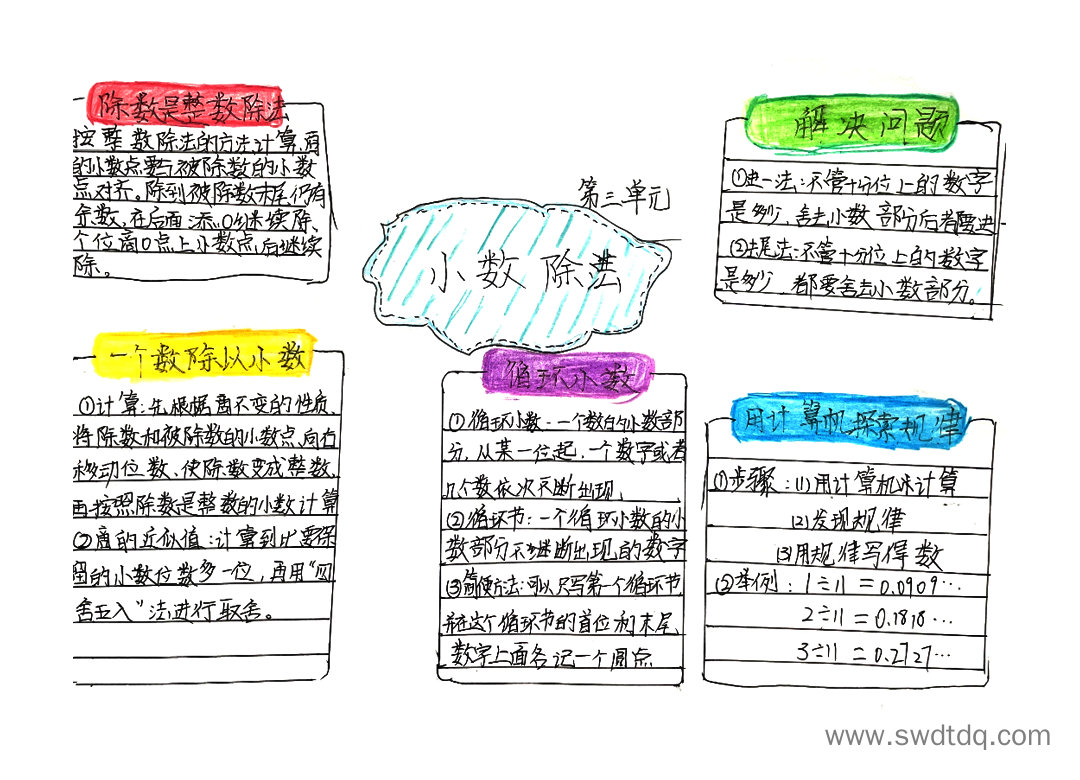 第三单元
小数除法
除数是整数除法
按整数除法的方法计算,商
的小数点要与被除数的小数
点对齐。除到被除数末尾仍有
余数,在后面添0继续除、
个位商0点上小数点,后继续
除。
一个数除以小数
①计算:先根据商不变的性质、
将除数和被除数的小数点,向右
移动位数、使除数变成整数,
再按照除数是整数的小数计算
②商的近似值:计算到比要保
留的小数位数多一位,再用“四
舍五入”法,进行取舍。
循环小数
①循环小数:一个数的小数部
分,从某一位起,一个数字或者
几个数依次不断出现,
②循环节:一个循环小数的小
数部分不断出现的数字
③简便方法:可以只写第一个循环节,
并在这个循环节的首位和末尾,
数字上面各记一个圆点
解决问题
①进一法:不管十分位上的数字
是多少,舍去小数部分后都要进
②去尾法:不管十分位上的数字
是多少 都要舍去小数部分。
用计算机探索规律
①步骤:(1)用计算机来计算
(2)发现规律
(3)用规律写得数
②举例:1÷11=0.0909…
2÷11=0.1818…
3÷11=0.2727…
www.swdtdq.com